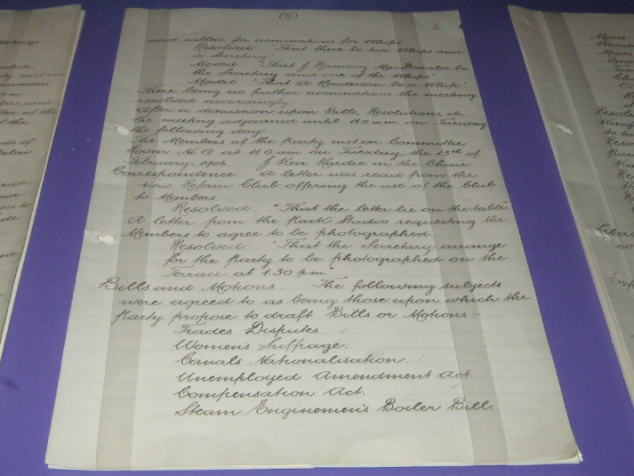 and called for nominations for Whips.
Resolved: "That there be two Whips and
a Secretary."
Moved "That J Ramsay MacDonald be
the Secretary and one of the Whips"
Moved "That A. Henderson be a Whip"
There being no further nominations the meeting
resolved accordingly.
After a discussion upon Bills, Resolutions, etc
the meeting adjourned until 11.0 a.m. on Tuesday
the following day.
The Members of the Party met in Committee
Room No 12 at 11.0 a.m. on Tuesday, the 13th of
February, 1906. J Keir Hardie in the Chair
Correspondence A letter was read from the
New Reform Club offering the use of the Club
to Members.
Resolved: "That the letter lie on the table"
A letter from the Park Studio requesting the
Members to agree to be photographed
Resolved: "That the Secretary arrange
for the Party to be photographed on the
Terrace at 1.30 p.m."
Bills and Motions. The following subjects
were agreed to as being those upon which the
Party propose to draft Bills or Motions:-
Trades Disputes.
Women's Suffrage.
Canals Nationalisation.
Unemployed Amendment Act.
Compensation Act.
Steam Enginemen's Boiler Bill.